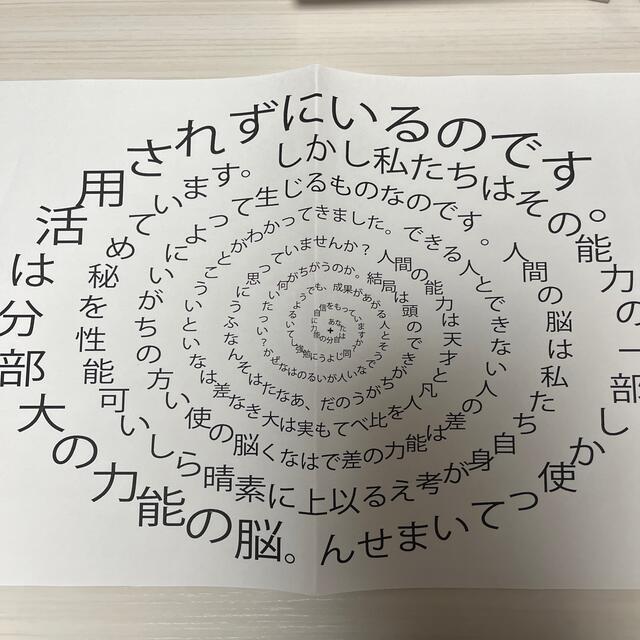 あなたは自分の能力に自信をもっていますか？同じように勉強しているようでも、成果があがる人とそうでない人がいるのはなぜか？いったい何がちがうのか。結局は頭のできがちがうのだ、あなたはそんなふうに思っていませんか？人間の能力は天才と凡人を比べても実は大きな差はないということがわかってきました。できる人とできない人の差は能力の差ではなく脳の使い方のちがいによって生じるものなのです。人間の脳は私たち自身が考える以上に素晴らしい可能性を秘めています。しかし私たちはその能力の一部しか使っていません。脳の能力の大部分は活用されずにいるのです。